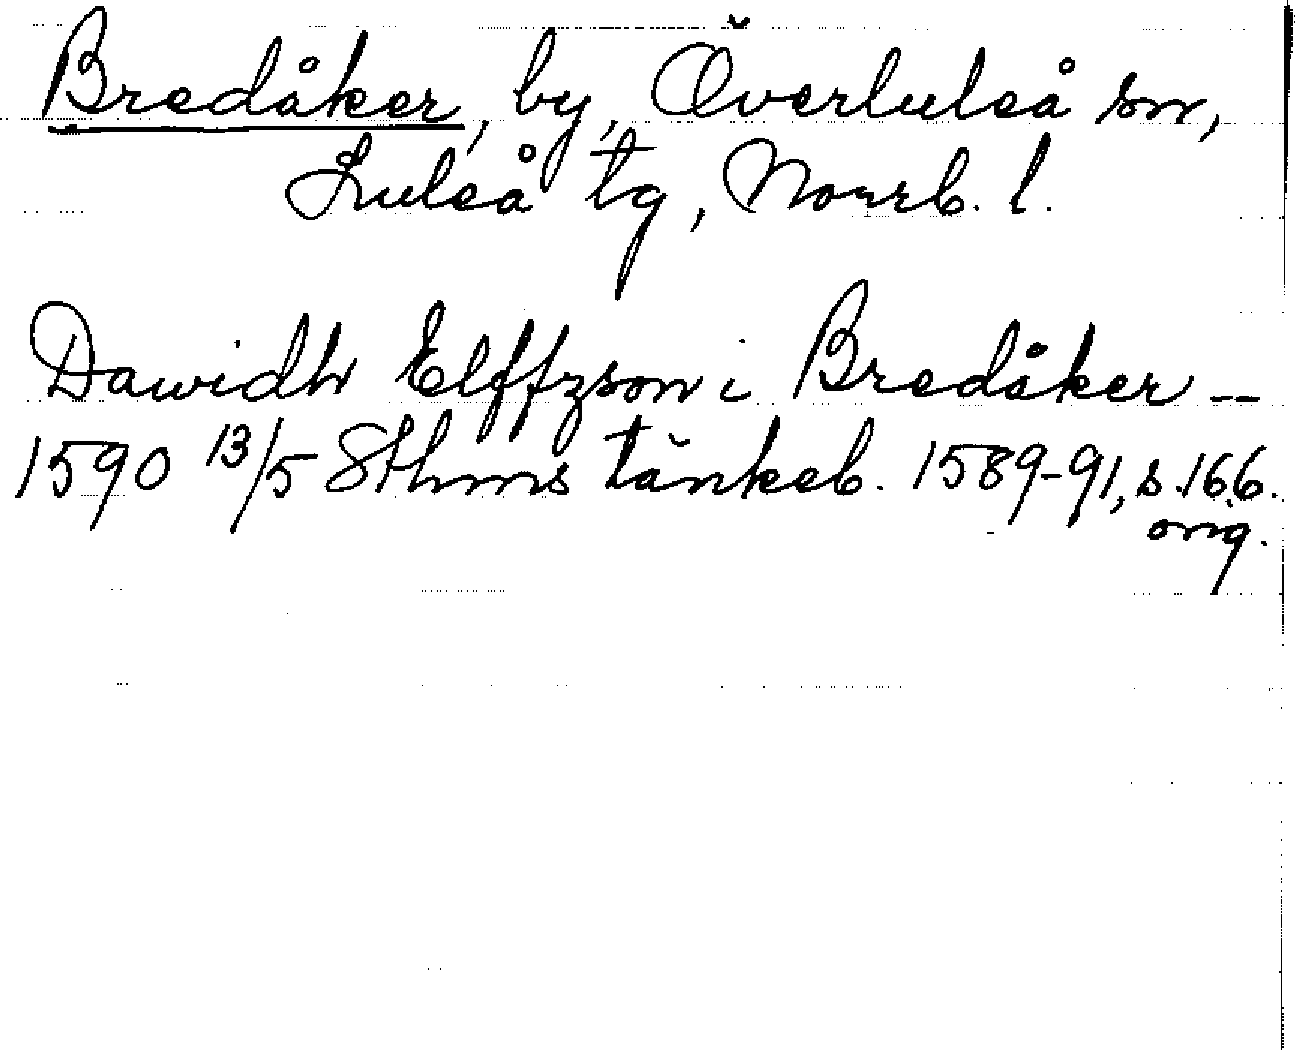 Bredåker, by, Överluleå sn,
Luleå tg, Norrb. l.
Dawidh Elffzson i Bredåker --
1590 13/5 Sthms tänkeb. 1589-91, s. 166.
orig.